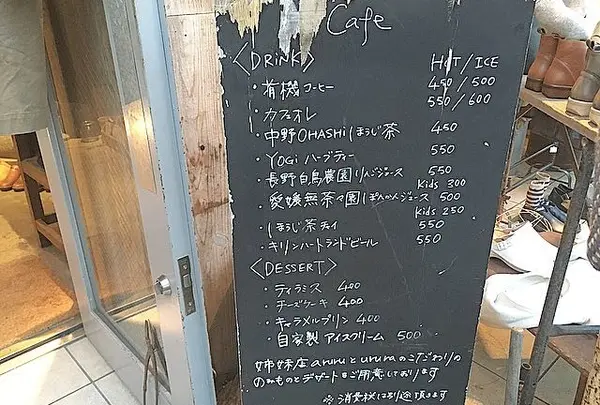 Cafe
〈DRINK〉 HOT/ICE
・有機コーヒー 450/500
・カフェオレ 550/600
・中野OHASHIほうじ茶 450
・YOGiハーブティー 550
・長野白鳥農園りんごジュース 550
Kids 300
・愛媛無茶々園ぽんかんジュース 500
Kids 250
・ほうじ茶チャイ 550
・キリンハートランドビール 550
〈DESSERT〉
・ティラミス 400
・チーズケーキ 400
・キャラメルプリン 400
・自家製アイスクリーム 500
姉妹店aruruとururaのこだわりの
のみものとデザートをご用意しております
※消費税は別途頂きます